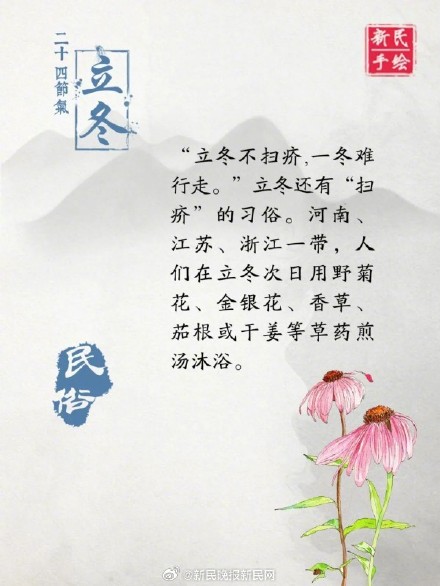 二十四節氣
立冬
新民
手绘
“立冬不扫疥,一冬难
行走。”立冬还有“扫
疥”的习俗。河南、
江苏、浙江一带，人
们在立冬次日用野菊
花、金银花、香草、
茄根或干姜等草药煎
汤沐浴。
民俗
@新民晚报新民网